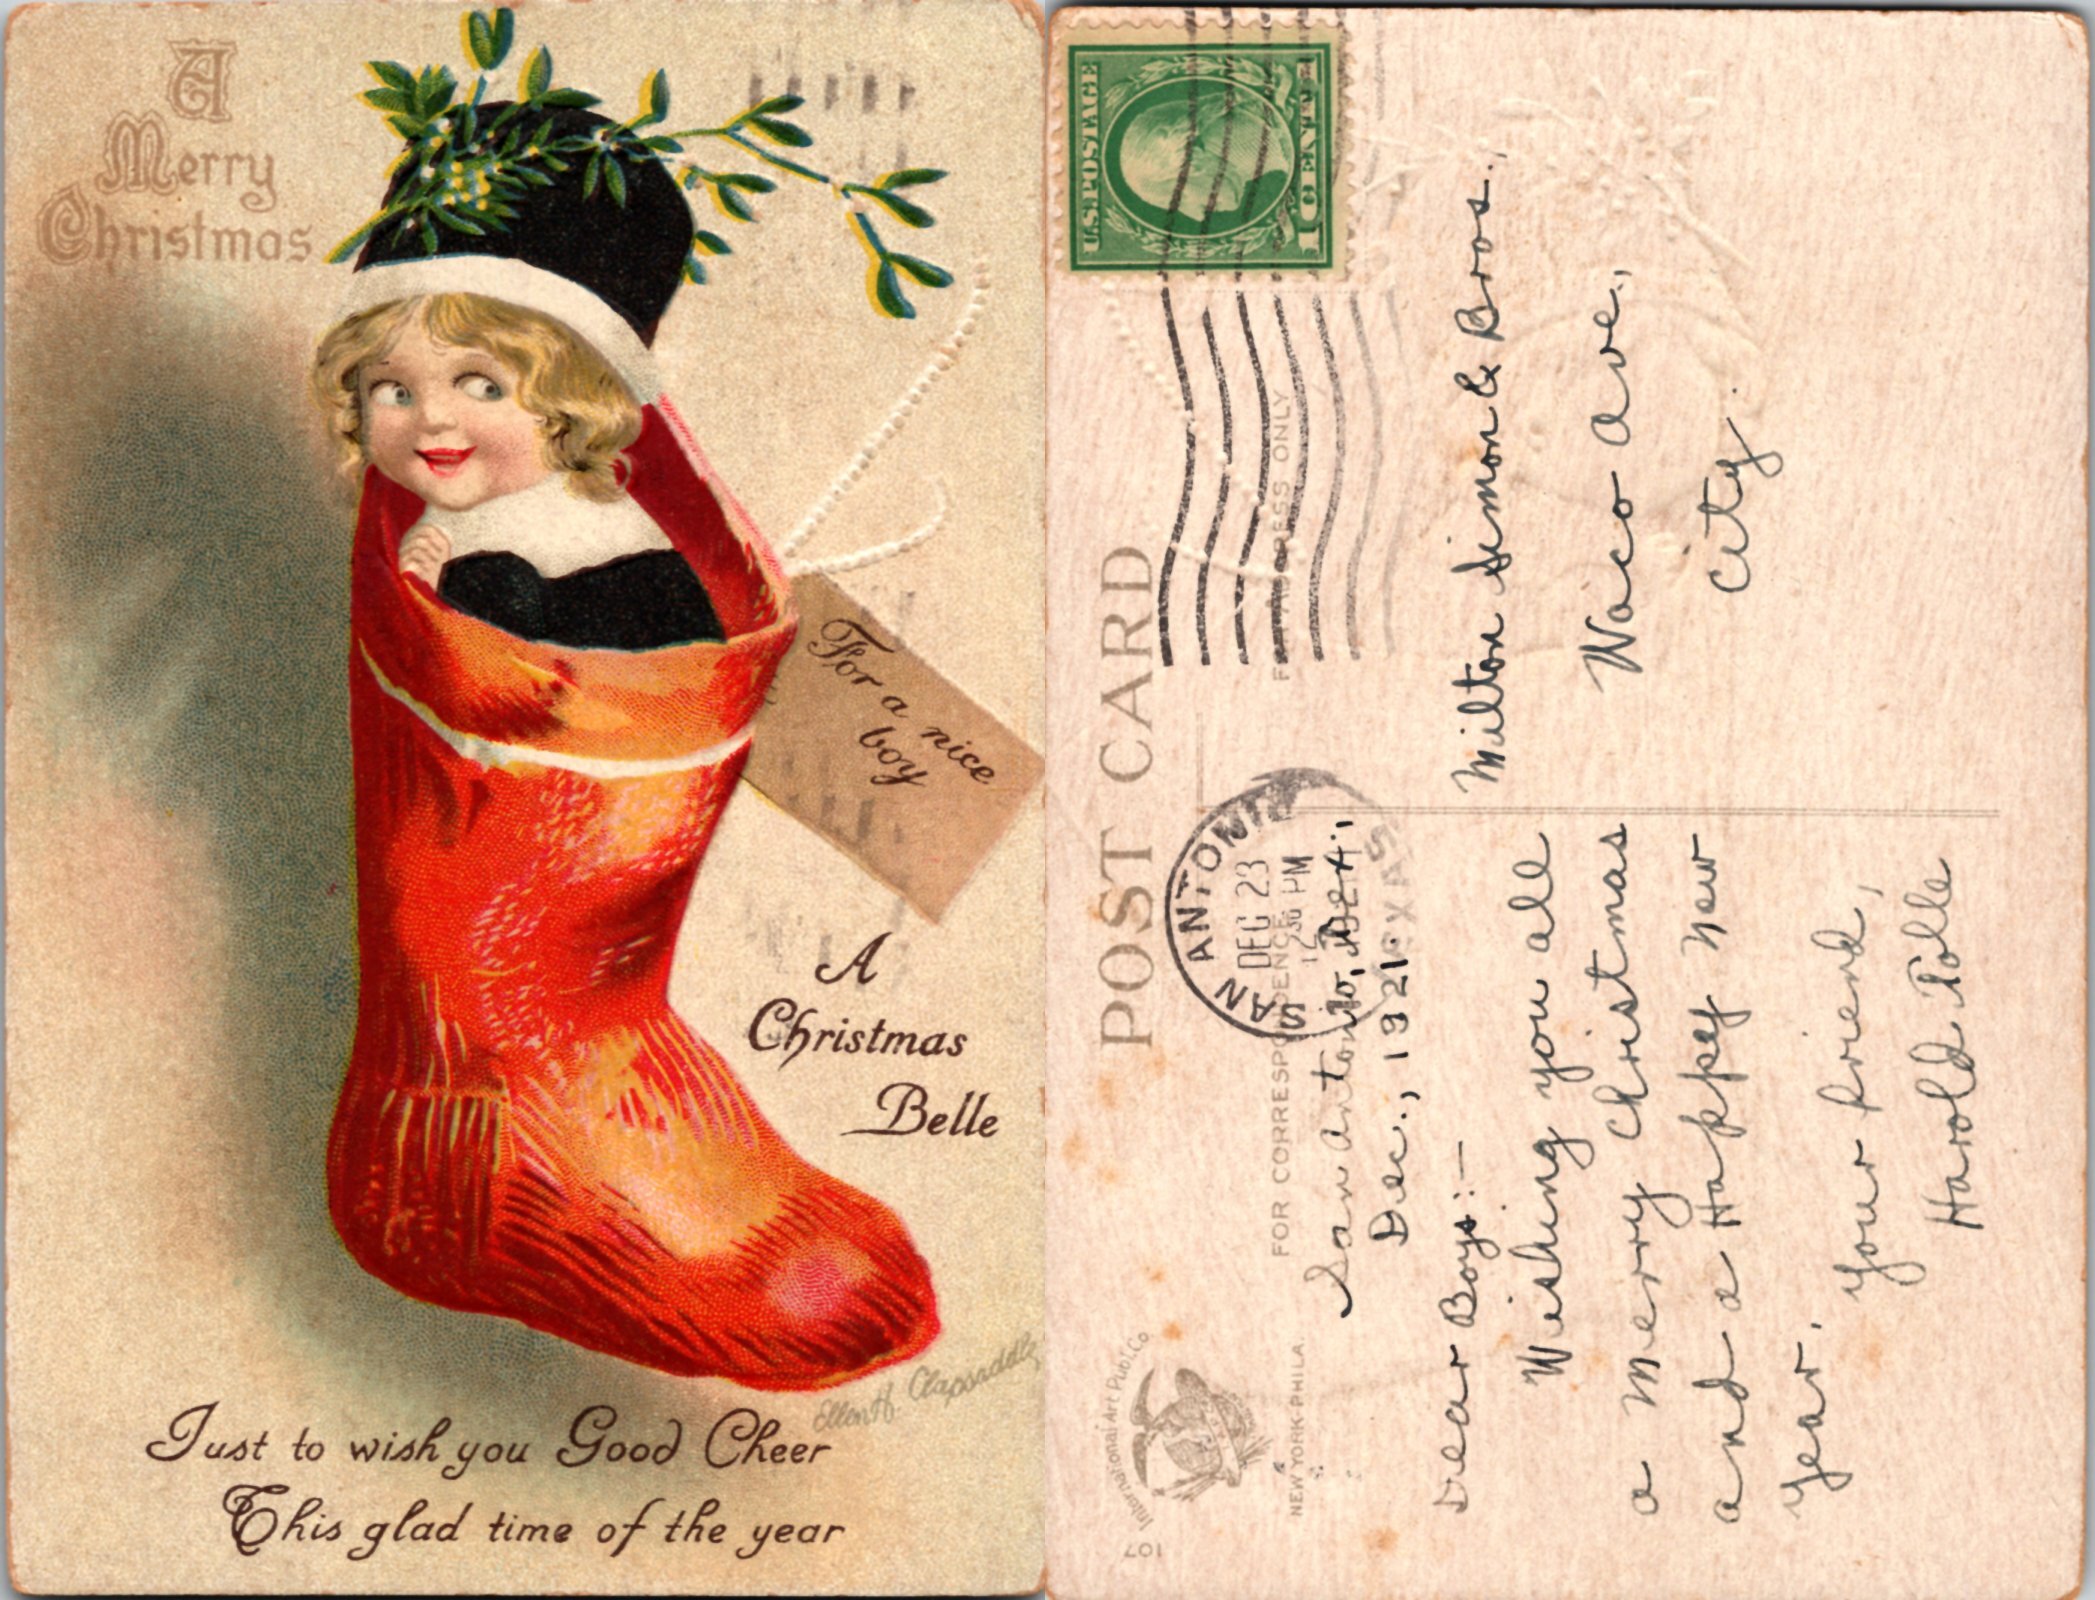 A
Merry
Christmas
For a nice
boy
A
Christmas
Belle
Ellen H. Clapsaddle
Just to wish you Good Cheer
This glad time of the year
U.S. POSTAGE
1 CENT 1
POST CARD
FOR CORRESPONDENCE
FOR ADDRESS ONLY
SAN ANTONIO
DEC 23
12 30 PM
TEXAS
International Art Publ. Co
NEW YORK-PHILA.
107
San Antonio,
Dec., 1321.
Dear Boys:—
Wishing you all
a Merry Christmas
and a Happy New
Year.
Your friend,
Harold Tolle
Milton Simon & Bros.,
Waco Ave.,
City.